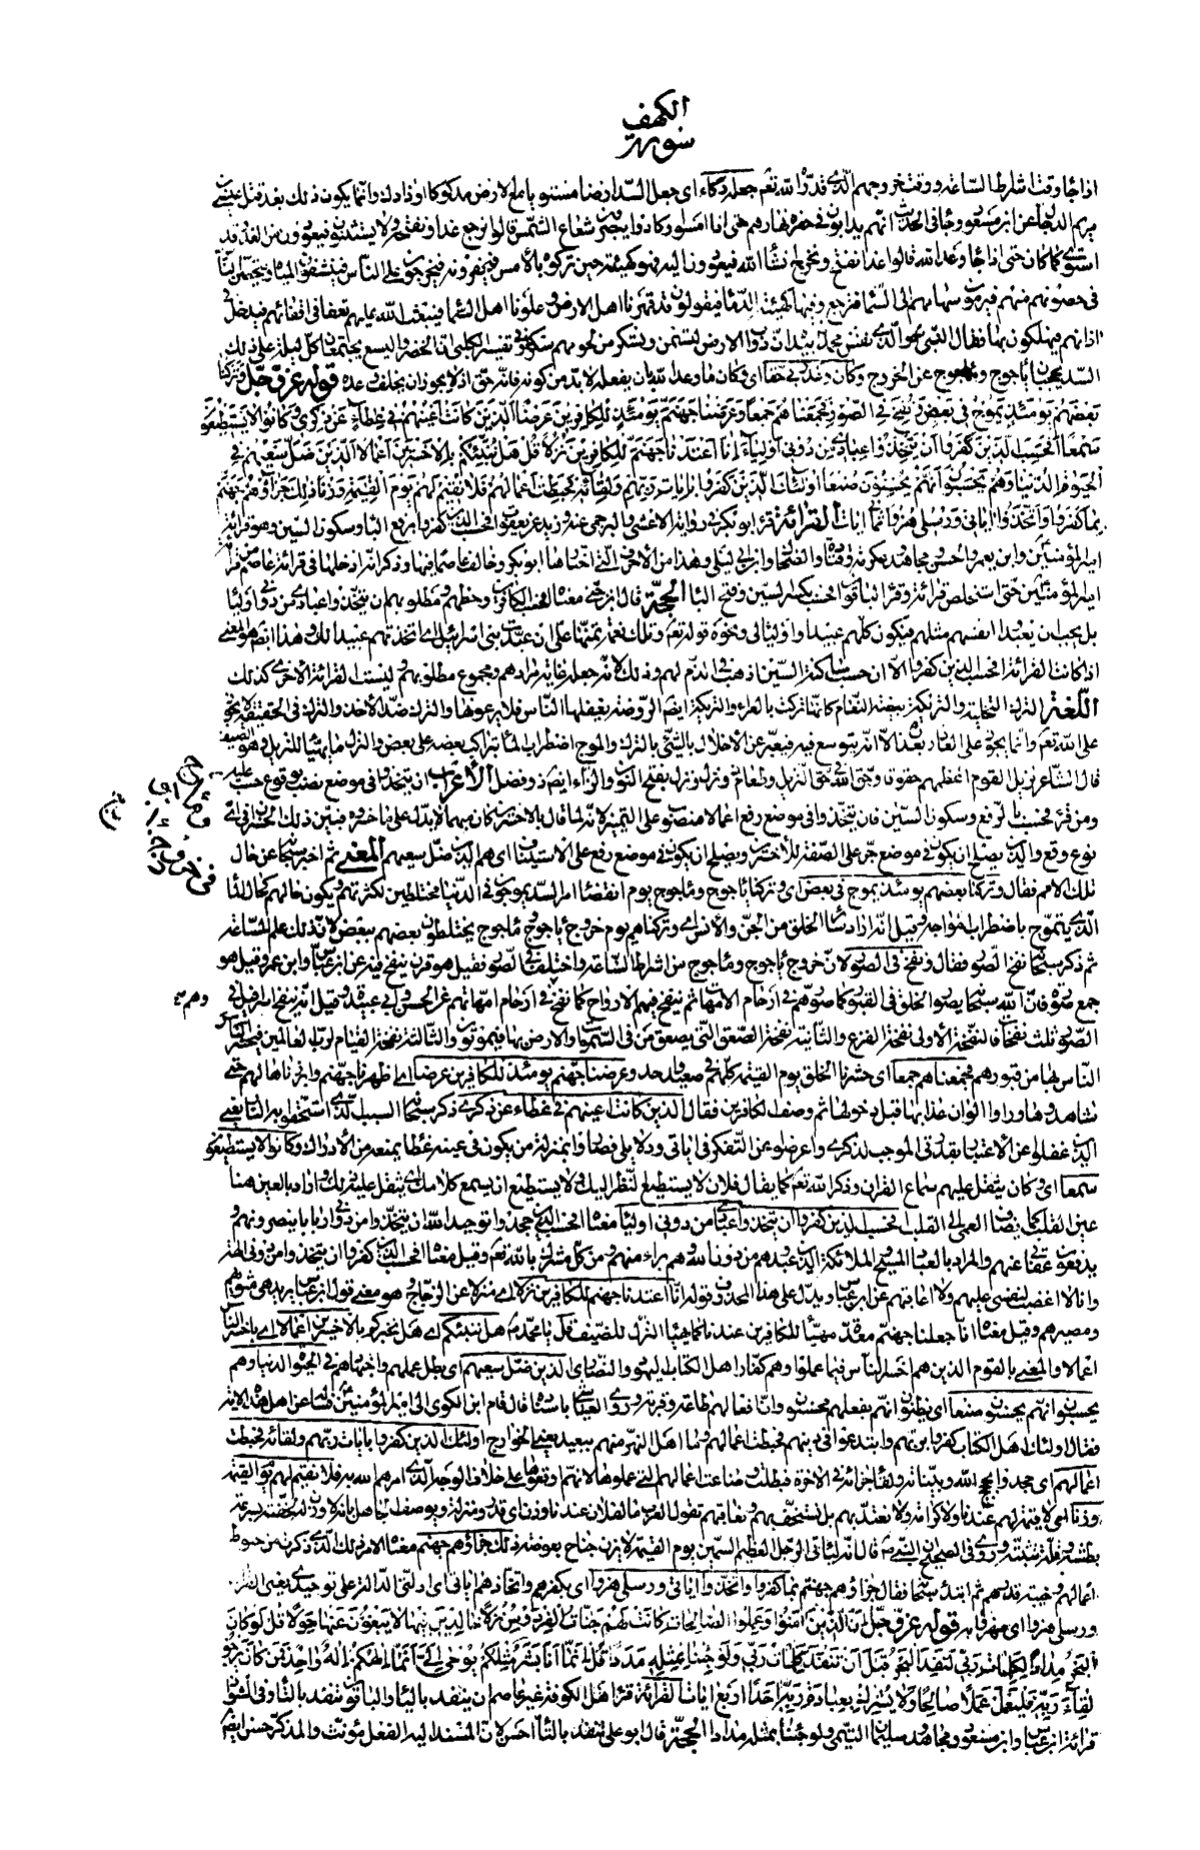 الكهف
سورة
اذا جاء وقت اشراط الساعة ووقت خروجهم الذى قدره الله تعم جعله دكاء اى جعل السد ارضا مستويا مع الارض مدكوكا او ذا دك وانما يكون ذلك بعد قتل عيسى بن
مريم الدجال عن ابن مسعود وجاء فى الحديث انهم يدابون فى حفره نهارهم حتى اذا امسوا وكادوا يبصرون شعاع الشمس قالوا نرجع غدا ونفتحه ولا يستثنون فيعودون من الغد وقد
استوى كما كان حتى اذا جاء وعد الله قالوا غدا نفتح ونخرج ان شاء الله فيعودون اليه فهو كهيئته حين تركوه بالامس فيخرقونه فيخرجون على الناس فينشفون المياه ويتحصن الناس
فى حصونهم منهم فيرمون سهامهم الى السماء فترجع وفيها كهيئة الدماء فيقولون قد قهرنا اهل الارض وعلونا اهل السماء فيبعث الله عليهم نغفا فى اقفائهم فيدخل
اذانهم فيهلكون بها فقال النبى ص والذى نفس محمد بيده ان دواب الارض لتسمن وتسكر من لحومهم سكرا وفى تفسير الكلبى ان الخضر واليسع يجتمعان كل ليلة على ذلك
السد يحجبان ياجوج وماجوج عن الخروج وكان وعد ربى حقا اى وكان ما وعد الله بان يفعله لا بد من كونه فانه حق اذ لا يجوز ان يخلف وعده قوله عز وجل وتركنا
بعضهم يومئذ يموج فى بعض ونفخ فى الصور فجمعناهم جمعا وعرضنا جهنم يومئذ للكافرين عرضا الذين كانت اعينهم فى غطاء عن ذكرى وكانوا لا يستطيعون
سمعا افحسب الذين كفروا ان يتخذوا عبادى من دونى اولياء انا اعتدنا جهنم للكافرين نزلا قل هل ننبئكم بالاخسرين اعمالا الذين ضل سعيهم فى
الحيوة الدنيا وهم يحسبون انهم يحسنون صنعا اولئك الذين كفروا بايات ربهم ولقائه فحبطت اعمالهم فلا نقيم لهم يوم القيمة وزنا ذلك جزاؤهم جهنم
بما كفروا واتخذوا اياتى ورسلى هزوا ثمان ايات القرائة قرا ابو بكر فى رواية الاعشى والبرجمى عنه وزيد عن يعقوب افحسب الذين كفروا برفع الباء وسكون السين وهو قرائة
امير المؤمنين وابن يعمر والحسن ومجاهد وعكرمة وقتادة والضحاك وابن ابى ليلى وهذا من الاحرف التى اختارها ابو بكر وخالف عاصما فيها وذكر انه ادخلها فى قرائة عاصم من قرائة
امير المؤمنين حتى استخلص قرائته وقرا الباقون افحسب بكسر السين وفتح الباء الحجة قال ابن جنى معناه افحسب الكافرين وحظهم ومطلوبهم ان يتخذوا عبادى من دونى اولياء
بل يجب ان يعبدوا انفسهم مثلهم فيكون كلهم عبيدا واولياء لى ونحوه قوله تعم وتلك نعمة تمنها على ان عبدت بنى اسرائيل اى اتخذتهم عبيدا لك وهذا ايضا هو المعنى
اذا كانت القرائة افحسب الذين كفروا الا ان حسب ساكنة السين اذهب فى الذم لهم وذلك لانه جعله غاية مرادهم ومجموع مطلوبهم وليست القرائة الاخرى كذلك
اللغة الترك التخلية والتريكة بيضة النعام كانها تركت بالعراء والتريكة ايضا الروضة يغفلها الناس فلا يرعونها والترك ضد الاخذ والترك فى الحقيقة لا يجوز
على الله تعم وانما يجوز على القادر بقدرة الا انه يتوسع فيه فيعبر عن الاخلال بالشئ بالترك والموج اضطراب الماء بتراكب بعضه على بعض والنزل ما يهيأ للنزيل وهو الضيف
قال الشاعر نزيل القوم اعظمهم حقوقا وحق الله فى حق النزيل وطعام ذو نزل ونزل بفتح النون والزاء ايضا ذو فضل الاعراب ان يتخذوا فى موضع نصب بوقوع حسب عليه
ومن قرء فحسب بالرفع وسكون السين فان يتخذوا فى موضع رفع اعمالا منصوب على التمييز لانه لما قال بالاخسرين كان مبهما لا يدل على ما خسروه فبين ذلك الخسران فى اى
نوع وقع والذين يصلح ان يكون فى موضع جر على الصفة للاخسرين ويصلح ان يكون فى موضع رفع على الاستيناف اى هم الذين ضل سعيهم المعنى ثم اخبر سبحانه عن حال
تلك الامم فقال وتركنا بعضهم يومئذ يموج فى بعض اى وتركنا ياجوج وماجوج يوم انقضاء امر السد يموجون فى الدنيا مختلطين لكثرتهم ويكون حالهم كحال الماء
الذى يتموج باضطراب امواجه وقيل انه اراد سائر الخلق من الجن والانس اى وتركنا هم يوم خروج ياجوج وماجوج يختلطون بعضهم ببعض لان ذلك علم للساعة
ثم ذكر سبحانه نفخ الصور فقال ونفخ فى الصور لان خروج ياجوج وماجوج من اشراط الساعة واختلف فى الصور فقيل هو قرن ينفخ فيه عن ابن عباس وابن عمر وقيل هو
جمع صورة فان الله سبحانه يصور الخلق فى القبور كما صورهم فى ارحام الامهات ثم ينفخ فيهم الارواح كما نفخ فى ارحام امهاتهم عن الحسن وابى عبيدة وقيل انه ينفخ اسرافيل فى
الصور ثلث نفخات فالنفخة الاولى نفخة الفزع والثانية نفخة الصعق التى يصعق من فى السموات والارض بها فيموتون والثالثة نفخة القيام لرب العالمين فيحشر
الناس بها من قبورهم فجمعناهم جمعا اى حشرنا الخلق يوم القيمة كلهم فى صعيد واحد وعرضنا جهنم يومئذ للكافرين عرضا اى اظهرنا جهنم وابرزناها لهم حتى
شاهدوها وراوا الوان عذابها قبل دخولها ثم وصف الكافرين فقال الذين كانت اعينهم فى غطاء عن ذكرى ذكر سبحانه السبب الذى استحقوا به النار يعنى
الذين غفلوا عن الاعتبار بقدرتى الموجب لذكرى واعرضوا عن التفكر فى اياتى ودلائلى فصاروا بمنزلة من يكون فى عينه غطاء يمنعه من الادراك وكانوا لا يستطيعون
سمعا اى وكان يثقل عليهم سماع القران وذكر الله تعم كما يقال فلان لا يستطيع النظر اليك ولا يستطيع ان يسمع كلامك اى يثقل عليه ذلك واراد بالعين هنا
عين القلب كما يضاف العمى الى القلب افحسب الذين كفروا ان يتخذوا عبادى من دونى اولياء معناه افحسب الذين جحدوا توحيد الله ان يتخذوا من دونى اربابا ينصرونهم و
يدفعون عقابى عنهم والمراد بالعباد المسيح والملائكة الذين عبدوهم من دون الله وهم براء منهم ومن كل مشرك بالله تعم وقيل معناه افحسب الذين كفروا ان يتخذوا من دونى الهة
وانا لا اغضب لنفسى عليهم ولا اعاقبهم عن ابن عباس ويدل على هذا المحذوف قوله انا اعتدنا جهنم للكافرين نزلا اى منزلا عن الزجاج وهو معنى قول ابن عباس يريد هى مثويهم
ومصيرهم وقيل معناه انا جعلنا جهنم معدة مهيأة للكافرين عندنا كما يهيأ النزل للضيف قل يا محمد هل ننبئكم اى هل نخبركم بالاخسرين اعمالا اى باخسر الناس
اعمالا والمعنى بالقوم الذين هم اخسر الناس فيما عملوا وهم كفار اهل الكتاب اليهود والنصارى الذين ضل سعيهم اى بطل عملهم واجتهادهم فى الحيوة الدنيا وهم
يحسبون انهم يحسنون صنعا اى يظنون انهم بفعلهم محسنون وان افعالهم طاعة وقربة وروى العياشى باسناده قال قام ابن الكوا الى امير المؤمنين فسأله عن اهل هذه الاية
فقال اولئك اهل الكتاب كفروا بربهم وابتدعوا فى دينهم فحبطت اعمالهم وما اهل النهر منهم ببعيد يعنى الخوارج اولئك الذين كفروا بايات ربهم ولقائه فحبطت
اعمالهم اى جحدوا بحجج الله وبيناته ولقاء جزائه فى الاخرة فبطلت وضاعت اعمالهم التى عملوها لانهم اوقعوها على خلاف الوجه الذى امرهم الله به فلا نقيم لهم يوم القيمة
وزنا اى لا قيمة لهم عندنا ولا كرامة ولا نعتد بهم بل نستخف بهم ونعاقبهم تقول العرب ما لفلان عندنا وزن اى قدر ومنزلة ويوصف الجاهل بانه لا وزن له لخفته بسرعة
بطشه وقلة تثبته وروى فى الصحيح ان النبى ص قال انه ليأتى الرجل العظيم السمين يوم القيمة لا يزن جناح بعوضة ذلك جزاؤهم جهنم معناه الامر ذلك الذى ذكرت من حبوط
اعمالهم وخسة قدرهم ثم ابتدأ سبحانه فقال جزاؤهم جهنم بما كفروا واتخذوا اياتى ورسلى هزوا اى بكفرهم واتخاذهم اياتى اى ادلتى الدالة على توحيدى يعنى القران
ورسلى هزوا اى مهزوا به قوله عز وجل ان الذين امنوا وعملوا الصالحات كانت لهم جنات الفردوس نزلا خالدين فيها لا يبغون عنها حولا قل لو كان
البحر مدادا لكلمات ربى لنفد البحر قبل ان تنفد كلمات ربى ولو جئنا بمثله مددا قل انما انا بشر مثلكم يوحى الى انما الهكم اله واحد فمن كان يرجو
لقاء ربه فليعمل عملا صالحا ولا يشرك بعبادة ربه احدا اربع ايات القرائة قرا اهل الكوفة غير عاصم ان ينفد بالياء والباقون تنفد بالتاء وفى الشواذ
قرائة ابن عباس وابن مسعود ومجاهد وسليمان التيمى ولو جئنا بمثله مدادا الحجة قال ابو على تنفد بالتاء احسن لان المسند اليه الفعل مؤنث والمذكر حسن ايضا